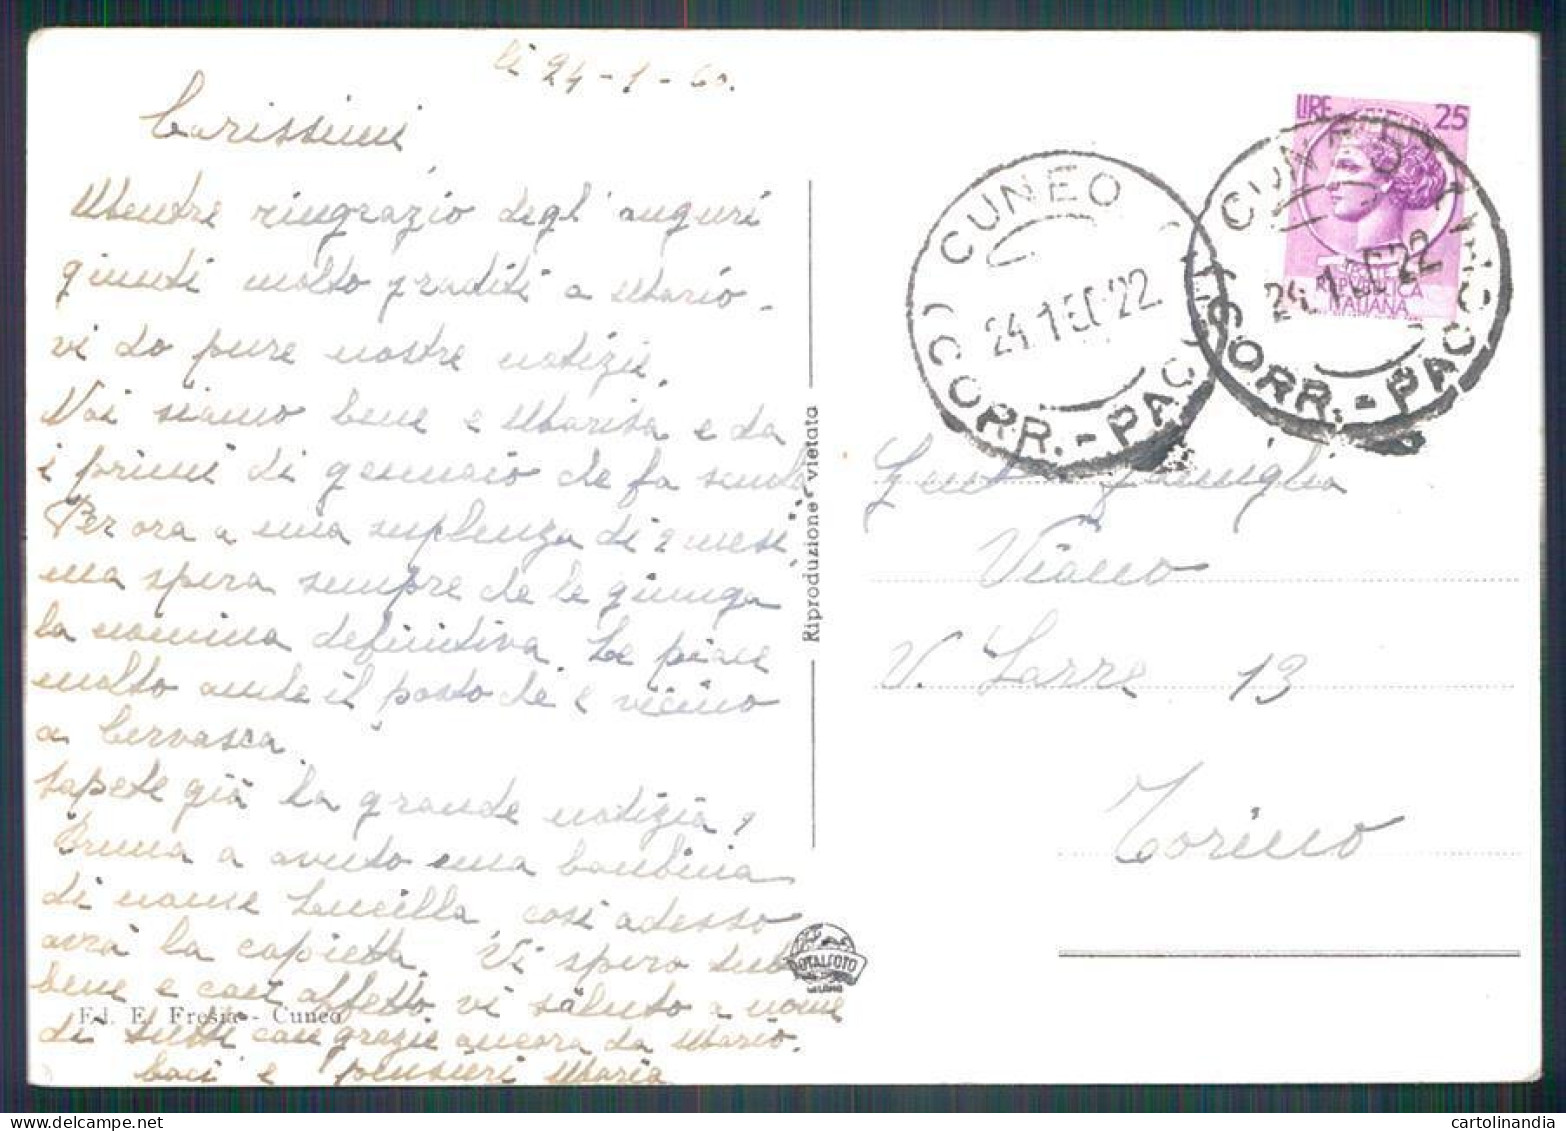 li 24-1-60.
Carissimi,
Mentre ringrazio degl'auguri
giunti molto graditi a Mario -
vi do pure nostre notizie.
Noi siamo bene e Marisa e da
i primi di gennaio che fa scuola
Per ora a una suplenza di 2 mesi
ma spera sempre che le giunga
la nomina definitiva. Le piace
molto anche il posto che è vicino
a Cervasca.
Sapete già la grande notizia?
Bruna a avuto una bambina
di nome Lucilla, così adesso
avrà la copietta. Vi spero tutti
bene e con affetto vi saluto a nome
di tutti con grazie ancora da Mario.
Baci e pensieri Maria
Ed. E. Fresia - Cuneo
Riproduzione vietata
TOTALFOTO
MILANO
LIRE 25
POSTE
REPUBBLICA
ITALIANA
CUNEO
24.1.60.22
CORR.-PAC
CUNEO
24.1.60.22
CORR.-PAC
Famiglia
Viano
V. Sarre 13
Torino
cartolinandia